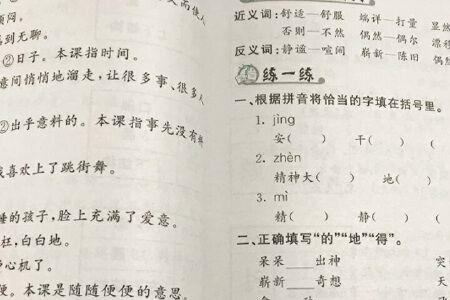 顾闷。
到无聊。
②日子。本课指时间。
意间悄悄地溜走，让很多事、很多人
②出乎意料的。本课指事先没有料
我喜欢上了跳街舞。
的孩子，脸上充满了爱意。
杠，白白地。
心机了。
便。本课是随随便便的意思。
近义词：舒适—舒服 端详—打量 显然
否则—不然 偶然—偶尔
反义词：静谧—喧闹 崭新—陈旧 偶然
练一练
一、根据拼音将恰当的字填在括号里。
1. jìng
安( ) 干( ) (
2. zhèn
精神大( ) 地( )
3. mì
精( ) 静( ) (
二、正确填写“的”“地”“得”。
呆呆____出神 突
崭新____奇想 天